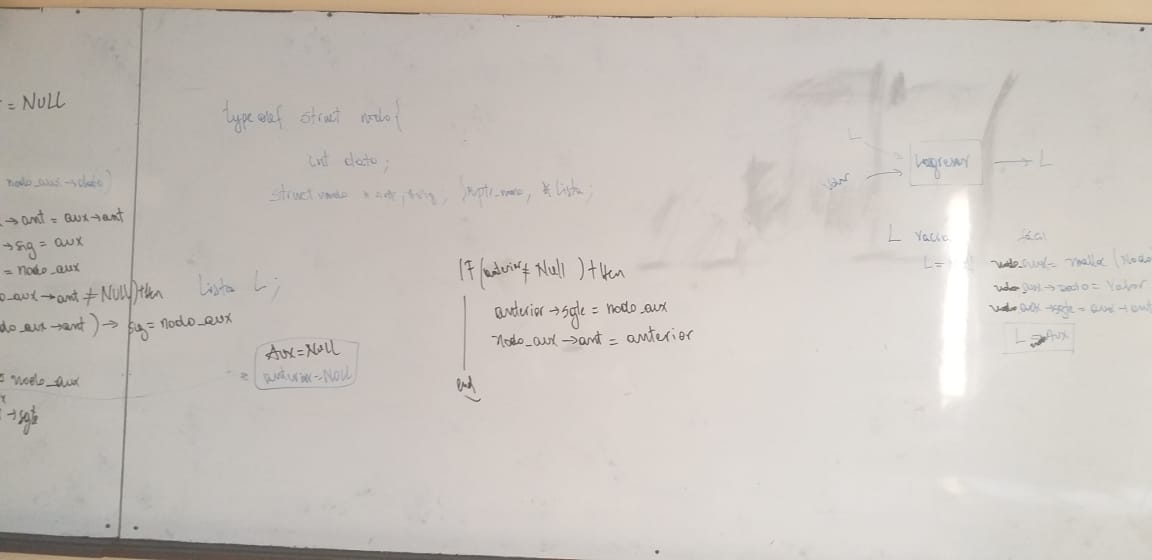 = NULL
nodo_aux → dato)
→ ant = aux → ant
→ sig = aux
= nodo_aux
→ ant ≠ NULL) then
aux → ant ) → sig = nodo_aux
= nodo_aux
→ sgte
typedef struct nodo{
int dato;
struct nodo * ant, * sig; } *ptr_nodo, * Lista;
Lista L;
Aux = NULL
anterior = NULL
If (anterior ≠ Null ) then
anterior → sgte = nodo_aux
nodo_aux → ant = anterior
end
L
valor
Ingresar
L
L vacía
L =
nodo_aux = malloc (Nodo
nodo_aux → dato = Valor
nodo_aux → sgte = aux → ant
L = Aux